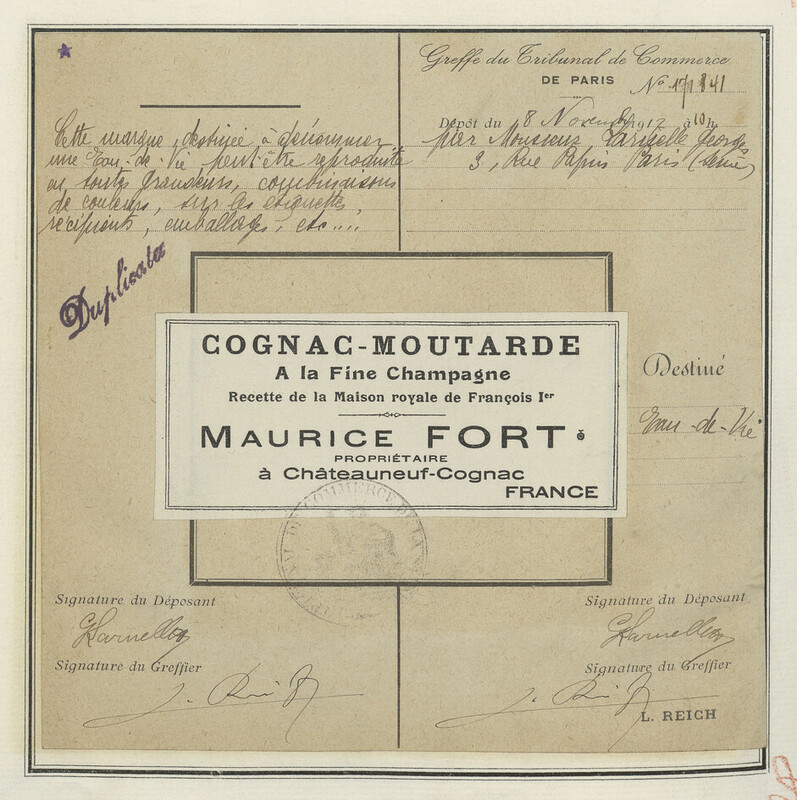 Greffe du Tribunal de Commerce
DE PARIS
No 171841
Dépôt du 8 Novembre 1912 à 10h
par Monsieur Georges
3, Rue Papin Paris (Seine)
Cette marque, destinée à dénommer
une Eau-de-Vie peut être reproduite
en toutes grandeurs, combinaisons
de couleurs, sur les étiquettes,
récipients, emballages, etc....
Duplicata
COGNAC-MOUTARDE
A la Fine Champagne
Recette de la Maison royale de François Ier
MAURICE FORT
PROPRIÉTAIRE
à Châteauneuf-Cognac
FRANCE
Destiné
Eau-de-Vie
Signature du Déposant
Signature du Greffier
Signature du Déposant
Signature du Greffier
L. REICH